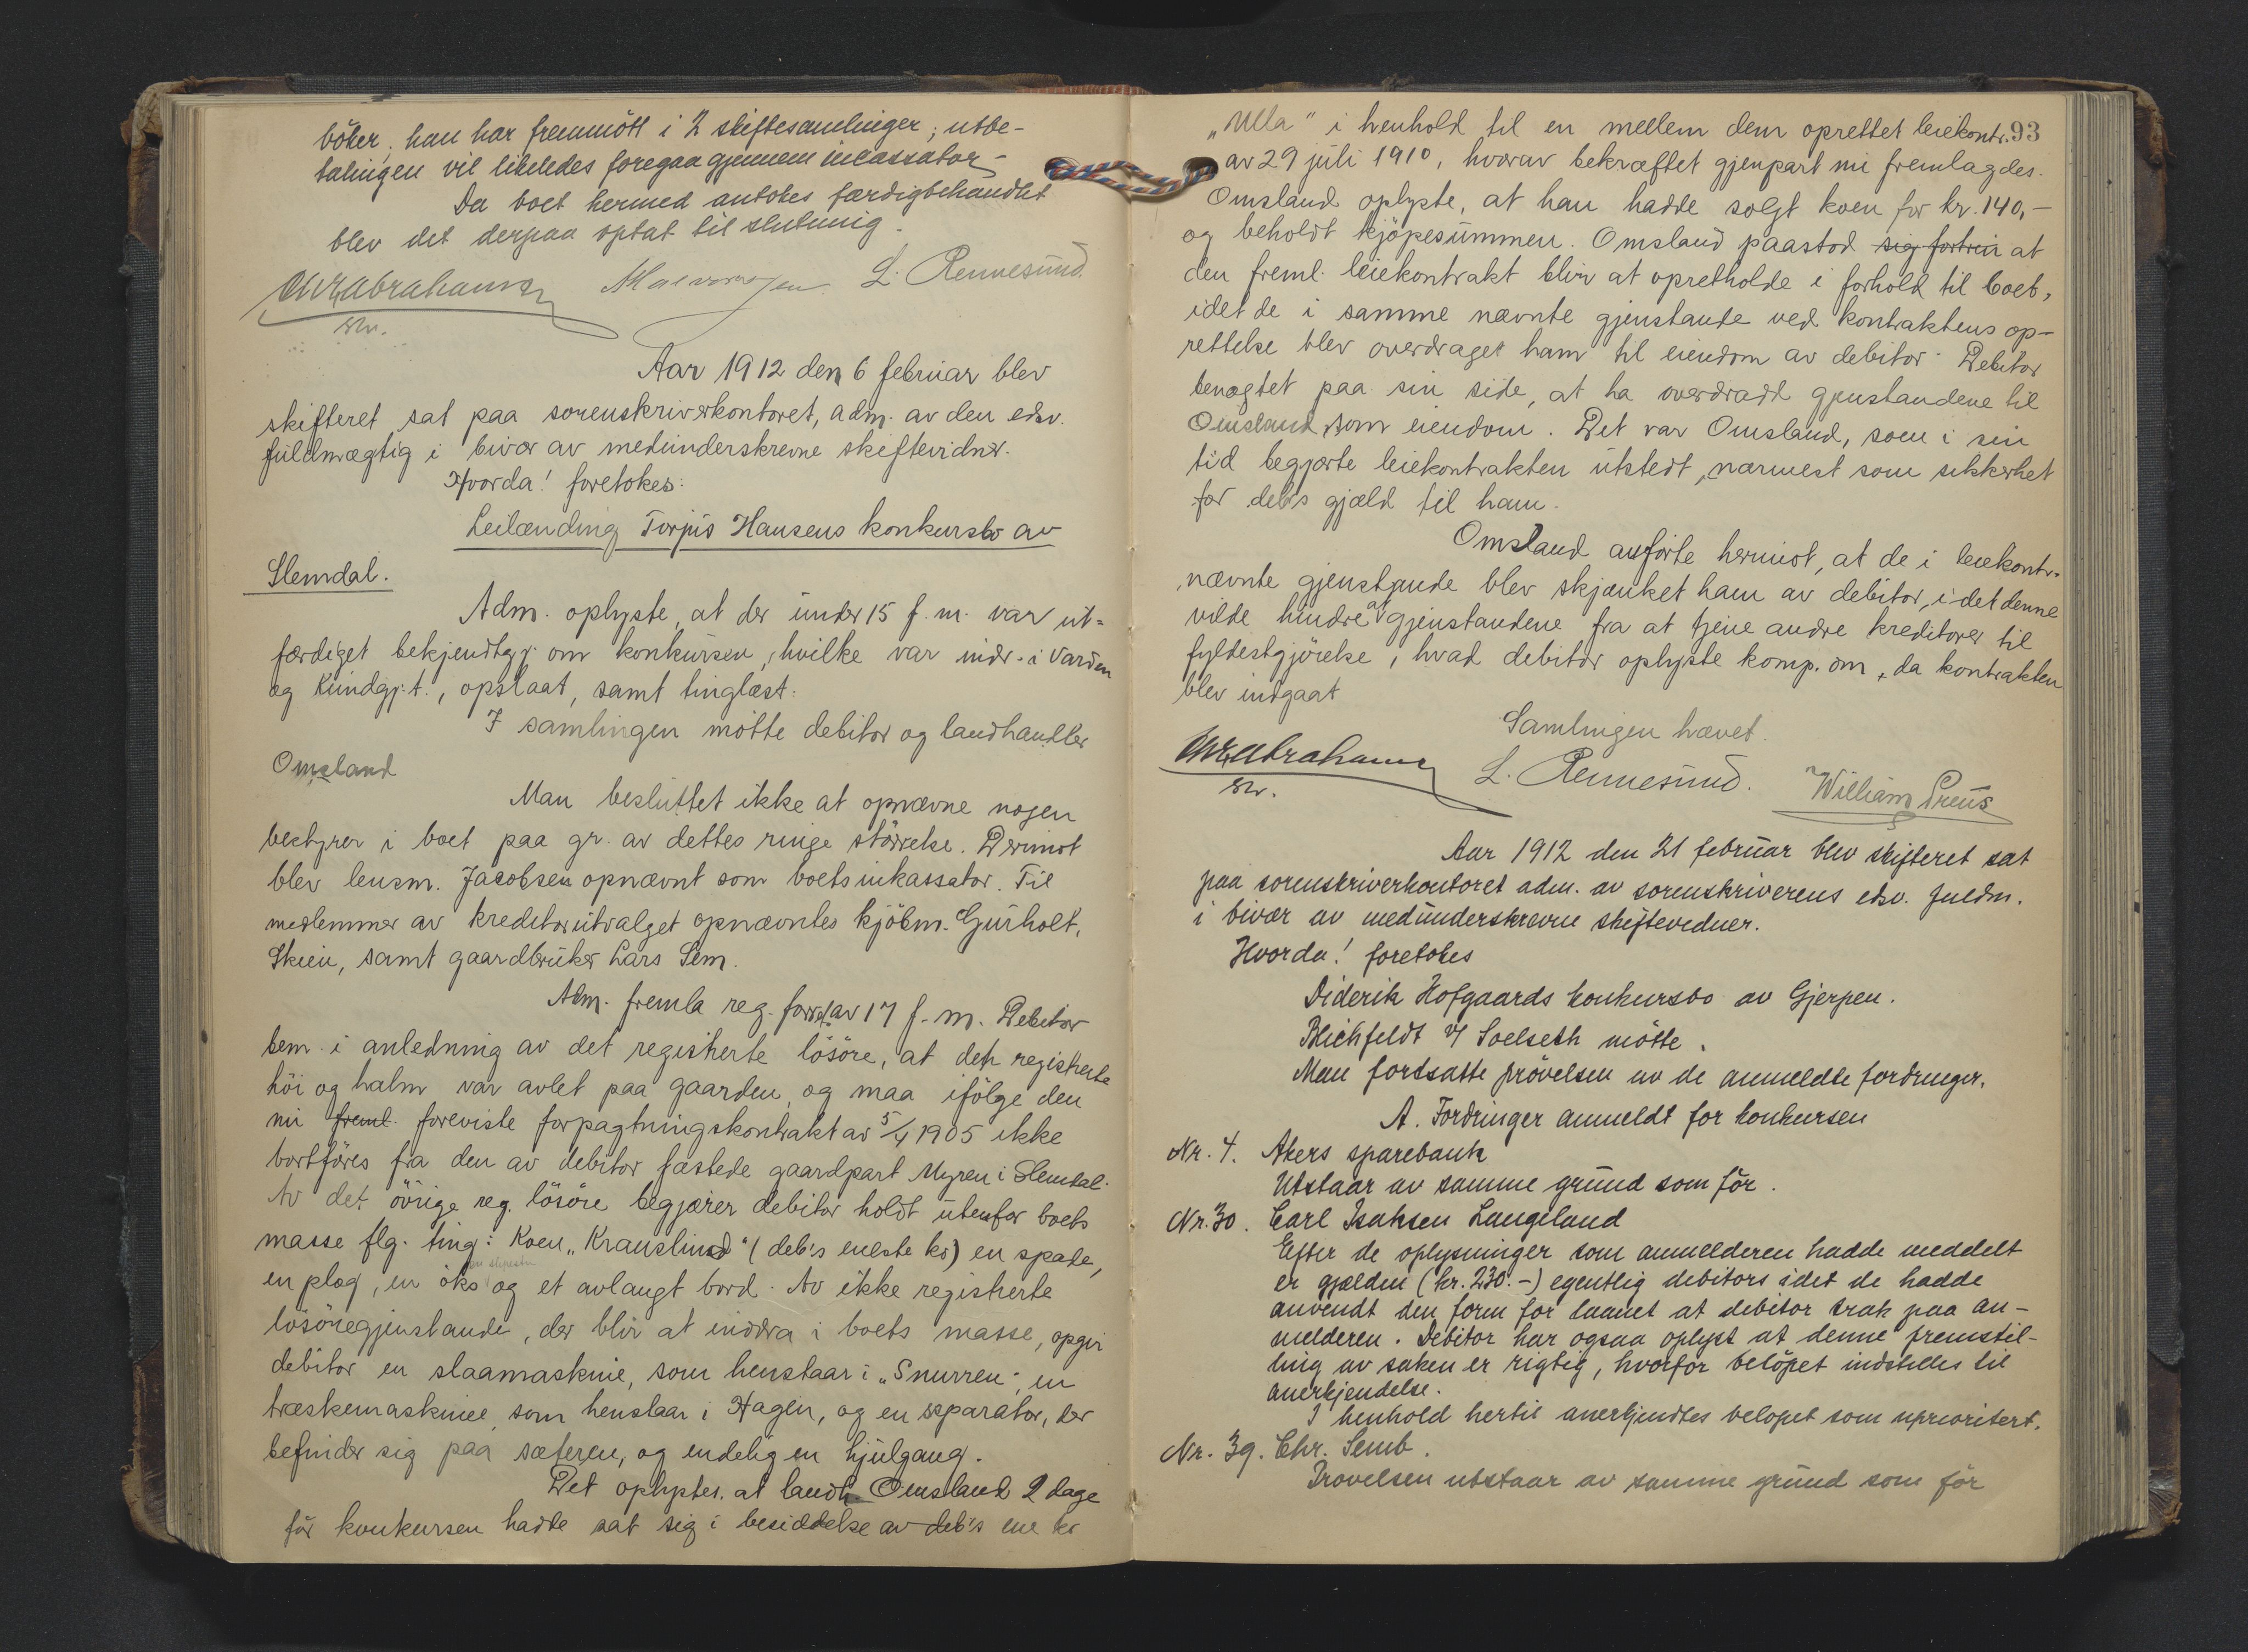 böker, han har fremmött i 2 skiftesamlinger; utbe-
talingen vil likeledes foregaa gjennem incassator-
Da boet hermed antokes færdigbehandlet
blev det derpaa optat til slutning.
Chr. Abrahamsen L. Rennesund.
Aar 1912 den 6 februar blev
skifteret sat paa sorenskriverkontoret, adm. av den edsv.
fuldmægtig i bivær av medunderskrevne skiftevidner.
Hvorda! foretokes:
Leilænding Torjus Hansens konkursbo av
Slemdal.
Adm. oplyste, at der under 15 f. m. var ut-
færdiget bekjendtgj. om konkursen, hvilke var indr. i Varden
og Kundgj.t., opslaat, samt tinglæst:
I samlingen mötte debitor og landhandler
Omsland
Man besluttet ikke at opnævne nogen
bestyrer i boet paa gr. av dettes ringe störrelse. Derimot
blev lensm. Jacobsen opnævnt som boets inkassator. Til
medlemmer av kreditorutvalget opnævntes kjöbm. Gurholt,
Skien, samt gaardbruker Lars Sem.
Adm. fremla reg. forretn. av 17 f. m. Debitor
bem. i anledning av det registrerte lösöre, at det registrerte
höi og halm var avlet paa gaarden, og maa ifölge den
nu freml. foreviste forpagtningskontrakt av 5/4 1905 ikke
bortföres fra den av debitor fæstede gaardpart Myren i Slemdal.
Av det övrige reg. lösöre begjærer debitor holdt utenfor boets
masse flg. ting: Koen „Kranslind“ (deb's eneste ko) en spade,
en plog, en öks og et avlangt bord. Av ikke registrerte
lösöregjenstande, der blir at inddra i boets masse, opgir
debitor en slaamaskine, som henstaar i „Snurren“, en
træskemaskine som henstaar i Hagen, og en separator, der
befinder sig paa sæteren, og endelig en hjulgang.
Det oplystes, at landh. Omsland 2 dage
för konkursen hadde sat sig i besiddelse av deb's ene ko
93
„Ulla“ i henhold til en mellem dem oprettet leiekontr.
av 29 juli 1910, hvorav bekræftet gjenpart nu fremlagdes.
Omsland oplyste, at han hadde solgt koen for kr. 140,-
og beholdt kjöpesummen. Omsland paastod sig fortrin at
den freml. leiekontrakt blir at opretholde i forhold til boet,
idet de i samme nævnte gjenstande ved kontraktens op-
rettelse blev overdraget ham til eiendom av debitor. Debitor
benegtet paa sin side, at ha overdradd gjenstandene til
Omsland som eiendom. Det var Omsland, som i sin
tid begjærte leiekontrakten utstedt, nærmest som sikkerhet
for deb's gjæld til ham.
Omsland anförte herimot, at de i leiekontr.
nævnte gjenstande blev skjænket ham av debitor, idet denne
vilde hindre at gjenstandene fra at tjene andre kreditorer til
fyldestgjörelse, hvad debitor oplyste komp. om, da kontrakten
blev indgaat
Samlingen hævet.
Chr. Abrahamsen L. Rennesund. William Preus
Aar 1912 den 21 februar blev skifteret sat
paa sorenskriverkontoret adm. av sorenskriverens edsv. fuldm.
i bivær av medunderskrevne skiftevidner.
Hvorda! foretokes
Diderik Hofgaards konkursbo av Gjerpen.
Blichfeldt v/ Soelseth mötte.
Man fortsatte prövelsen av de anmeldte fordringer.
A. Fordringer anmeldt for konkursen
Nr. 4. Akers sparebank
Utstaar av samme grund som för.
Nr. 30. Carl Isaksen Langeland
Efter de oplysninger som anmelderen hadde meddelt
er gjælden (kr. 230.-) egentlig debitors idet de hadde
anvendt den form for laanet at debitor trak paa an-
melderen. Debitor har ogsaa oplyst at denne fremstil-
ling av saken er rigtig, hvorfor belöpet indstilles til
anerkjendelse.
I henhold hertil anerkjendtes belöpet som uprioritert.
Nr. 39. Chr. Semb.
Prövelsen utstaar av samme grund som för